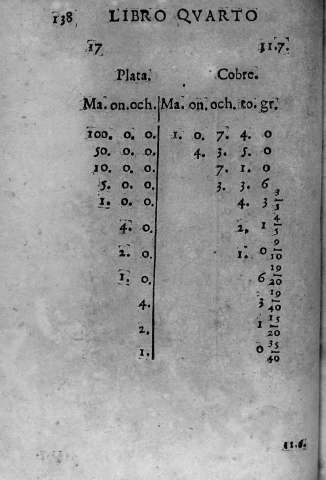 138 LIBRO QVARTO
17 11.7.
Plata. Cobre.
Ma. on. och. Ma. on. och. to. gr.
100. 0. 0. 1. 0. 7. 4. 0
50. 0. 0. 4. 3. 5. 0
10. 0. 0. 7. 1. 0
5. 0. 0. 3. 3. 6
1. 0. 0. 4. 3 3/5
4. 0. 2. 1 4/5
2. 0. 1. 0 9/10
1. 0. 6 19/20
4. 3 19/40
2. 1 15/20
1. 0 35/40
11.6.